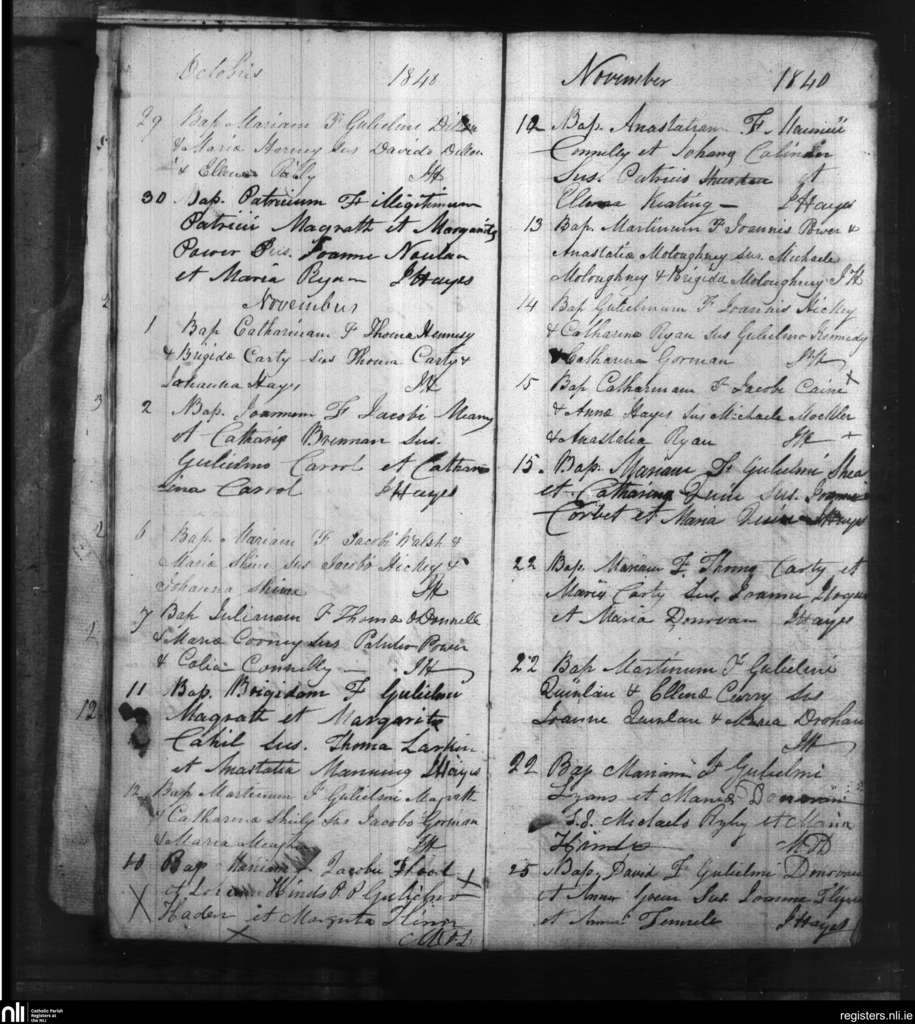 Octobris 1840
29 Bap Mariam F Gulielmi Dillon
& Maria Sus Davido Dillon
& Ellena JH
30 Bap. Patricium F illigitimum
Patricii Magrath et Margarita
Power Sus. Joanne
et Maria Ryan JHayes
Novembris
1 Bap Catharinam F Thoma Hennesy
& Brigida Carty Sus Thoma Carty &
Johanna Hayes JH
2 Bap. Joannem F Jacobi Meany
et Catharina Brennan Sus.
Gulielmo Carrol et Catha
rina Carrol JHayes
6 Bap. Mariam F Jacobi Walsh &
Maria Shine Sus Jacobo Hickey &
Johanna Shine JH
7 Bap Julianam F Thoma
& Maria Cooney Sus Patricio Power
& Celia Connelly JH
11 Bap. Brigidam F Gulielmi
Magrath et Margarita
Cahil Sus. Thoma Larkin
et Anastatia Manning JHayes
12 Bap Martinum F Gulielmi Magrath
& Catharina Sus Jacobo Gorman
& Maria Meagher JH
10 Bap Mariam F Jacobi
et Hinds P P Gulielmo
Haden et Margrita
November 1840
12 Bap. Anastatiam F Mauricii
Connelly et Johana
Sus. Patricio et
Ellena Keating JHayes
13 Bap. Martinum F Joannis Power &
Anastatia Moloughney Sus. Michaele
Moloughney & Brigida Moloughney JH
14 Bap Gulielmum F Joannis Hickey
& Catharina Ryan Sus Gulielmo Kennedy
& Catharina Gorman JH
15 Bap Catharinam F Jacobi Caine
& Anna Hayes Sus Michaele Mockler
& Anastatia Ryan JH
15. Bap. Mariam F Gulielmi Shea
et Catharina Quin Sus. Joanne
Corbet et Maria JHayes
22 Bap. Mariam F. Thoma Carty et
Maria Carty Sus. Joanne
et Maria Donovan JHayes
22 Bap Martinum F Gulielmi
Quinlan & Ellena Curry Sus
Joanne Quinlan & Maria Drohan
JH
22 Bap Mariam F Gulielmi
Lyons et Maria Donovan
S.S. Michaele et Maria
Hinds
25 Bap. David F Gulielmi Donovan
et Anna Sus Joanne Flynn
et Anna JHayes
2
3
2
12
nli Catholic Parish
Registers at
the NLI
registers.nli.ie